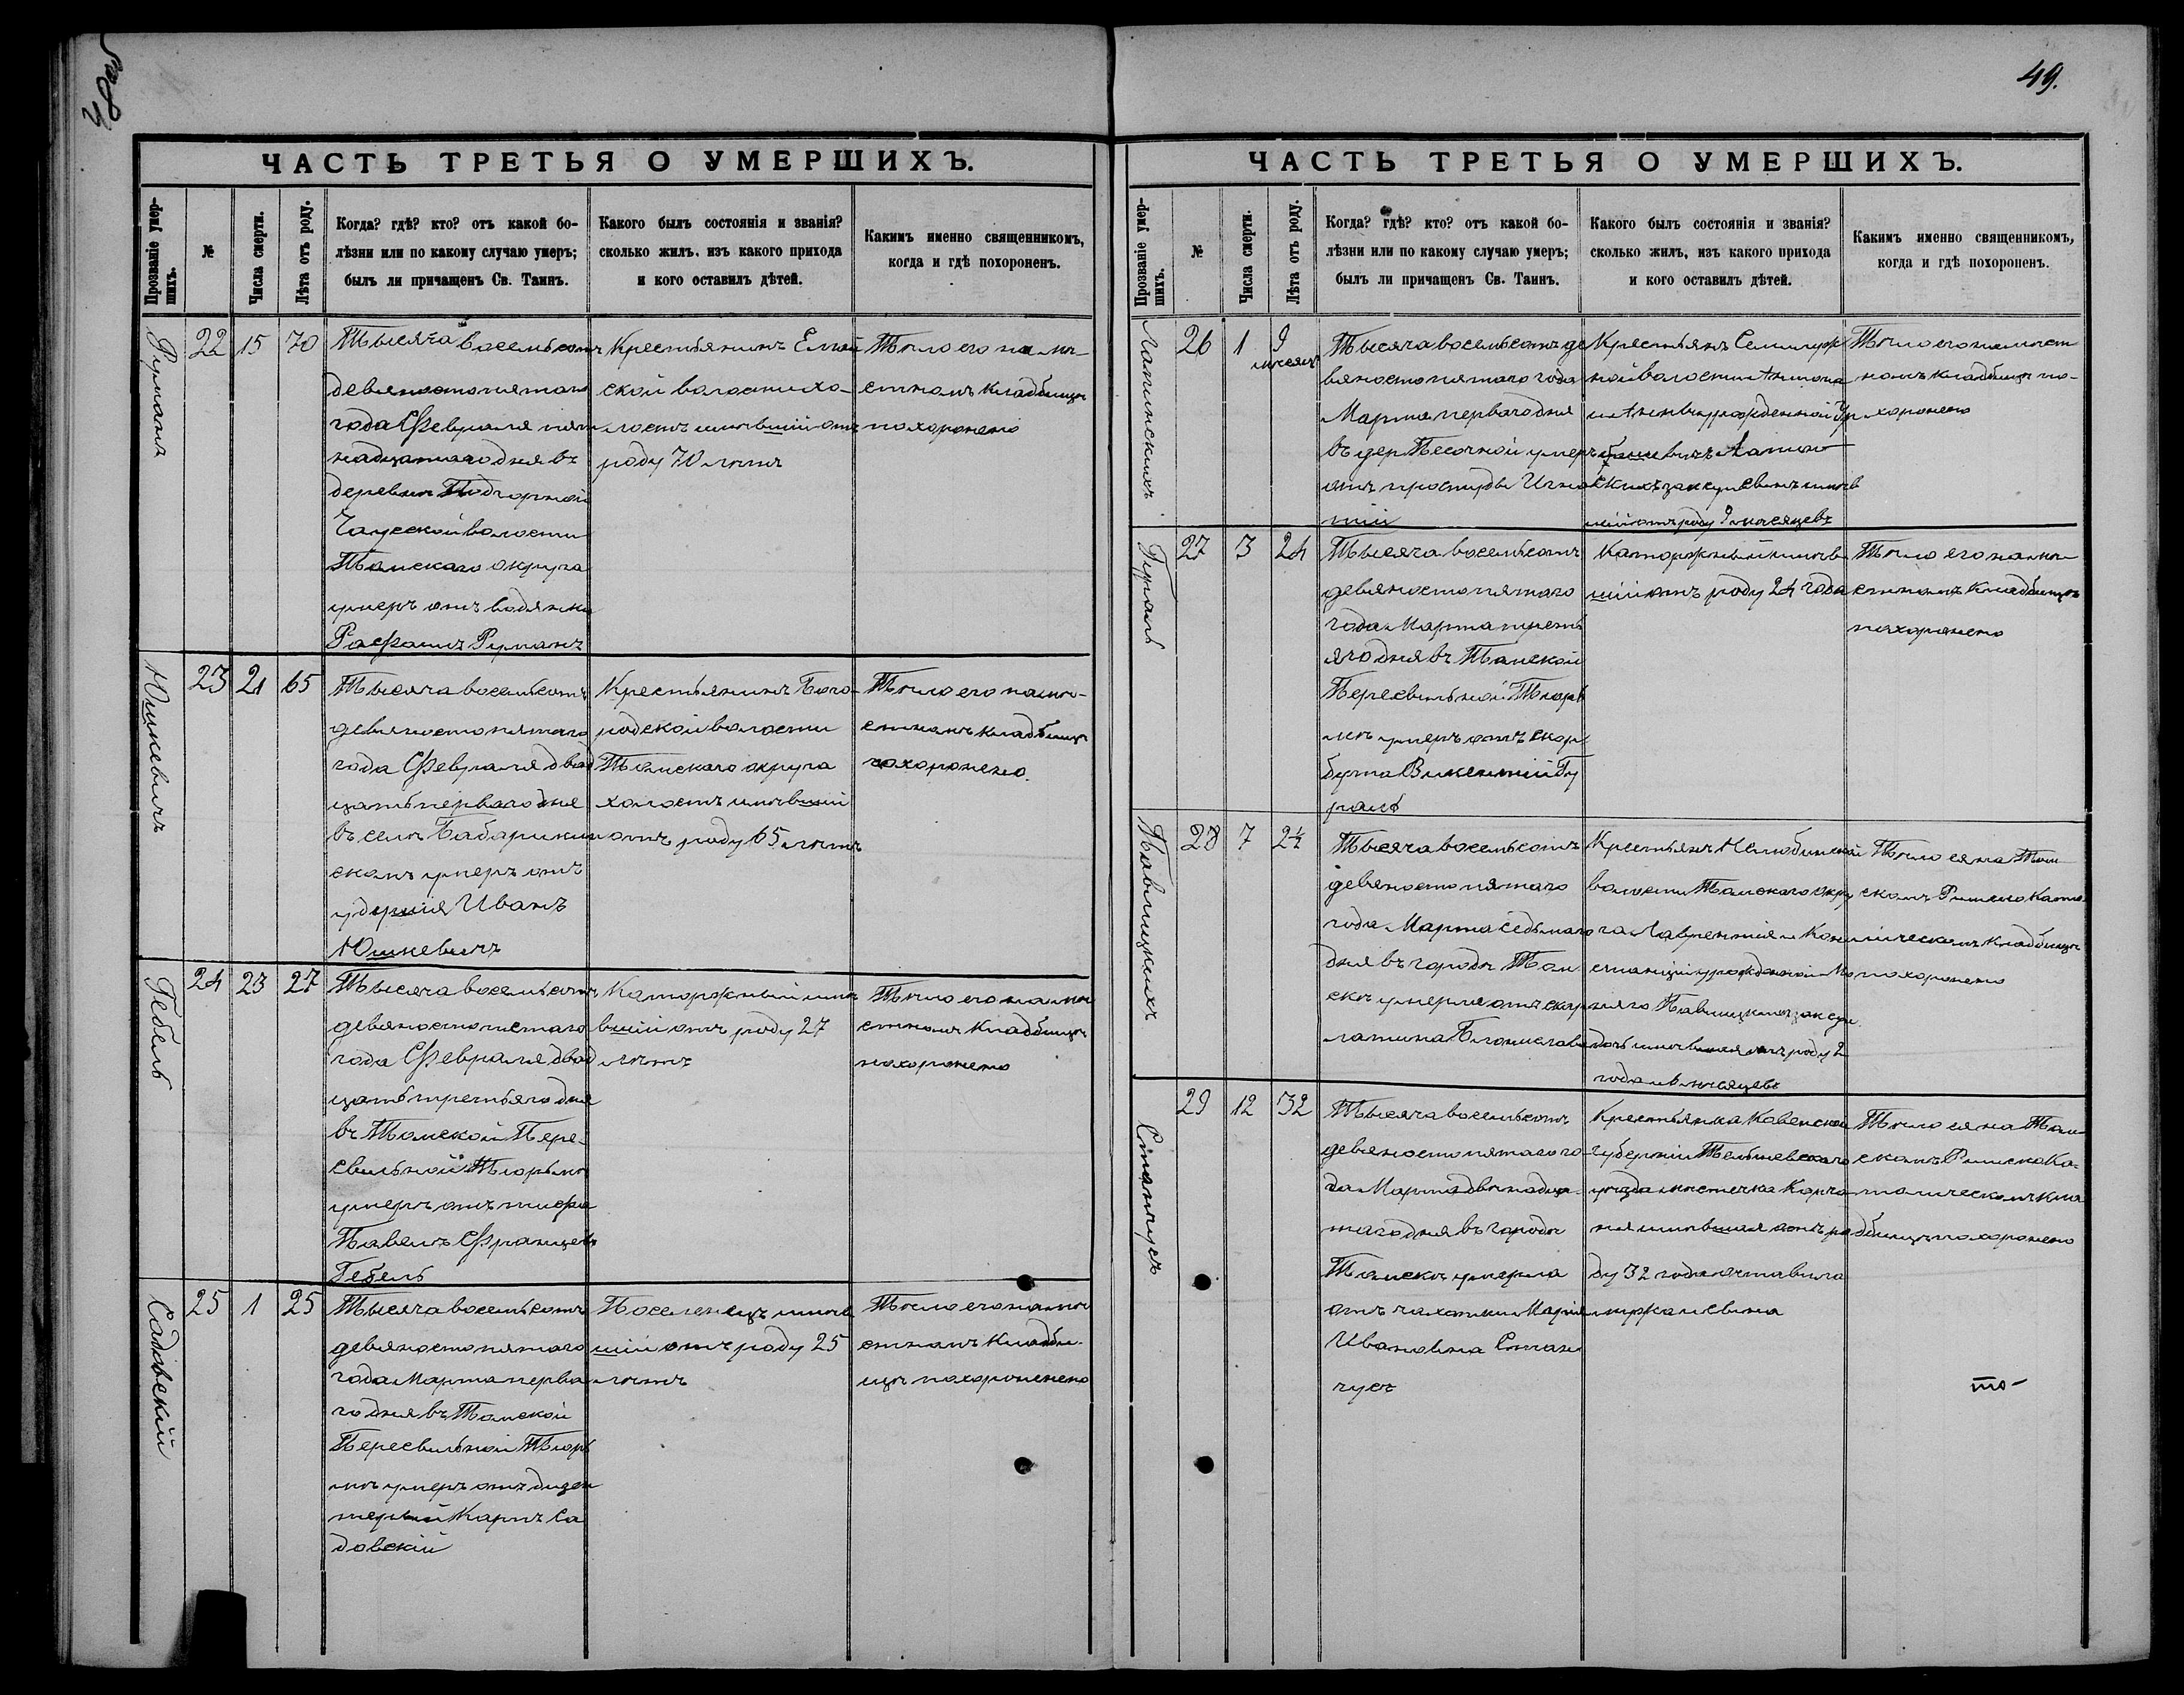 48 об
ЧАСТЬ ТРЕТЬЯ О УМЕРШИХЪ.
Прозваніе умер-
шихъ.
№
Числа смерти.
Лѣта отъ роду.
Когда? гдѣ? кто? отъ какой бо-
лѣзни или по какому случаю умеръ;
былъ ли причащенъ Св. Таинъ.
Какого былъ состоянія и званія?
сколько жилъ, изъ какого прихода
и кого оставилъ дѣтей.
Какимъ именно священникомъ,
когда и гдѣ похороненъ.
Руманъ
22
15
70
Тысяча восемьсотъ
девяносто пятаго
года Февраля пят
надцатаго дня въ
деревнѣ Подгорной
Чауской волости
Томскаго округа
умеръ отъ водянки
Рафаилъ Руманъ
Крестьянинъ Елгай
ской волости хо-
лостъ имѣвшій отъ
роду 70 лѣтъ
Тѣло его на мѣ-
стномъ кладбищѣ
похоронено
Юшкевичъ
23
21
65
Тысяча восемьсотъ
девяносто пятаго
года Февраля двад
цать перваго дня
въ селѣ Бабарыкин
скомъ умеръ отъ
Иванъ
Юшкевичъ
Крестьянинъ Бого-
родской волости
Томскаго округа
холостъ имѣвшій
отъ роду 65 лѣтъ
Тѣло его на мѣ-
стномъ кладбищѣ
похоронено.
Гебель
24
23
27
Тысяча восемьсотъ
девяносто пятаго
года Февраля двад
цать третьяго дня
въ Томской Пере-
сыльной Тюрьмѣ
умеръ отъ тифа
Павелъ Францевъ
Гебель
Каторжный имѣ
вшій отъ роду 27
лѣтъ
Тѣло его на мѣ
стномъ кладбищѣ
похоронено
Садовскій
25
1
25
Тысяча восемьсотъ
девяносто пятаго
года Марта перва
го дня въ Томской
Пересыльной Тюрь
мѣ умеръ отъ дизен
теріи Карпъ Са
довскій
Поселенецъ имѣв
шій отъ роду 25
лѣтъ
Тѣло его на мѣ
стномъ кладби-
щѣ похоронено
49.
ЧАСТЬ ТРЕТЬЯ О УМЕРШИХЪ.
Прозваніе умер-
шихъ.
№
Числа смерти.
Лѣта отъ роду.
Когда? гдѣ? кто? отъ какой бо-
лѣзни или по какому случаю умеръ;
былъ ли причащенъ Св. Таинъ.
Какого былъ состоянія и званія?
сколько жилъ, изъ какого прихода
и кого оставилъ дѣтей.
Какимъ именно священникомъ,
когда и гдѣ похороненъ.
Лапинскихъ
26
1
9
мѣсяц
Тысяча восемьсотъ де
вяносто пятаго года
Марта перваго дня
въ дер Песочной умеръ
отъ простуды Игна
тій
Крестьянъ Семилуж
ной волости Антона
и Анны урожденной Ур
бановичъ Лапин
скихъ зак сынъ имѣв
шій отъ роду 9 мѣсяцевъ
Тѣло его на мѣст
номъ кладбищѣ по-
хоронено
Гураль
27
3
24
Тысяча восемьсотъ
девяносто пятаго
года Марта треть
яго дня въ Томской
Пересыльной Тюрь
мѣ умеръ отъ скор
бута Викентій Гу
раль
Каторжный имѣв
шій отъ роду 24 года
Тѣло его на мѣ-
стномъ кладбищѣ
похоронено
Павлицкихъ
28
7
2½
Тысяча восемьсотъ
девяносто пятаго
года Марта седьмаго
дня въ городѣ Том
скѣ умерла отъ скар
латина Бронислава
Крестьянъ Нелюбинской
волости Томскаго окру
га Лаврентія и Кон
станціи урожденной
Павлицкихъ зак
дочь имѣвшая отъ роду 2
года мѣсяцевъ
Тѣло ея на Том
скомъ Римско Като
лическомъ кладбищѣ
похоронено
Станчусъ
29
12
32
Тысяча восемьсотъ
девяносто пятаго го-
да Марта двѣнадца-
таго дня въ городѣ
Томскѣ умерла
отъ чахотки Марія
Ивановна Стан
чусъ
Крестьянка Ковенской
губерніи Тельшевскаго
уѣзда мѣстечка Корча-
ня имѣвшая отъ ро
ду 32 года оставила
мужа и сына
Тѣло ея на Том-
скомъ Римско Ка-
толическомъ кла
дбищѣ похоронено
то-